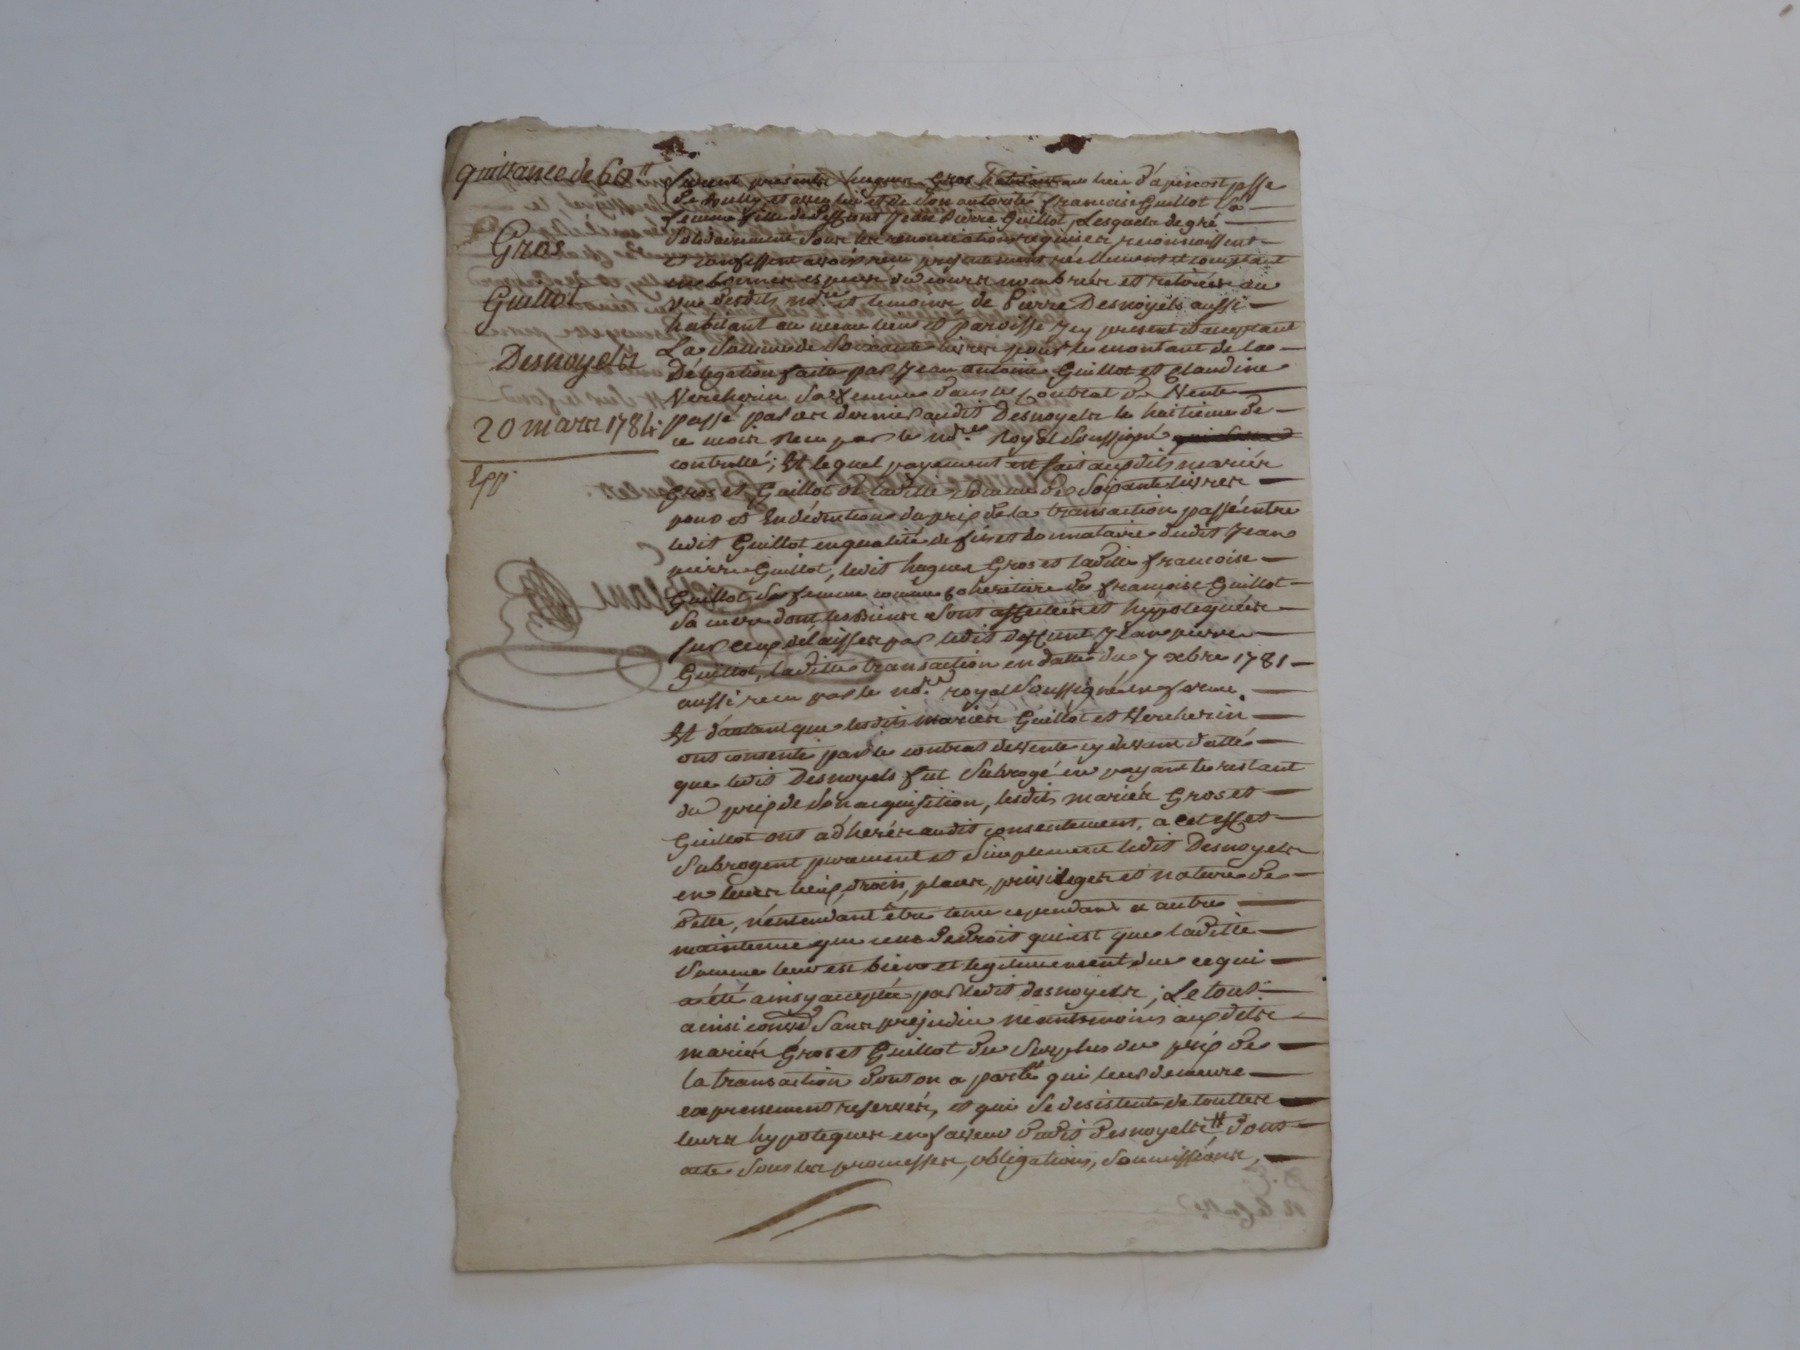 quittance de 60ᵗᵗ
Gros
Guillot
Desnoyels
20 mars 1784.
Exp.
furent presents hugues Gros habitant au lieu d' psse
de et avec lui et de son autorité francoise Guillot sa
femme fille de deffunt Jean Pierre Guillot, Lesquels de gré
solidairement sous les renonciations requises, reconnoissent
et confessent avoir recu presentement réellement et comptant
en bonnes especes du cours nombrées et retirées au
vue desdits nore. et temoins de Pierre Desnoyels aussi
habitant au meme lieu et paroisse icy present et acceptant
La somme de soixante livres pour le montant de la
Délégation faite par Jean antoine Guillot et Claudine
Vercherin sa femme dans le Contrat de Vente
passé par ces derniers audit Desnoyels le huitieme de
ce mois recu par le nore. royal soussigné
controllé; Et lequel payement est fait auxdits mariés
Gros et Guillot de ladite somme de soixante livres
pour et En déduction du prix de la transaction passé entre
ledit Guillot en qualité de fils et donnataire dudit Jean
pierre Guillot, ledit hugues Gros et ladite francoise
Guillot sa femme comme coheritiere de francoise Guillot
sa mere dont les Biens sont affectées et hypotequées
sur ceux délaissés par ledit deffunt Jean pierre
Guillot, ladite transaction en datte du 7 xbre 1781
aussi recu par le nore. royal soussigné en forme.
Et d'autant que lesdits mariés Guillot et Vercherin
ont consenti par le contrat de vente cy devant datté
que ledit Desnoyels fut subrogé en payant le restant
du prix de son acquisition, lesdits mariés Gros et
Guillot ont adherés audit consentement, a cet effet
subrogent purement et simplement ledit Desnoyels
en leurs lieux, droits, places, privileges et nature de
dette, n'entendant être tenu cependant a autre
maintenue que celle de droit qui est que ladite
somme leur est bien et legitimement due ce qui
a été ainsy accepté par ledit desnoyels; Le tout
ainsi conv̄ed sans prejudice neantmoins auxdits
mariés Gros et Guillot du surplus du prix de
la transaction dont on a parlé qui leur demeure
expressement reservés, et qui se desistent de touttes
leurs hypoteques en faveur dudit desnoyels # dont
acte sous les promesses, obligations, soumissions,